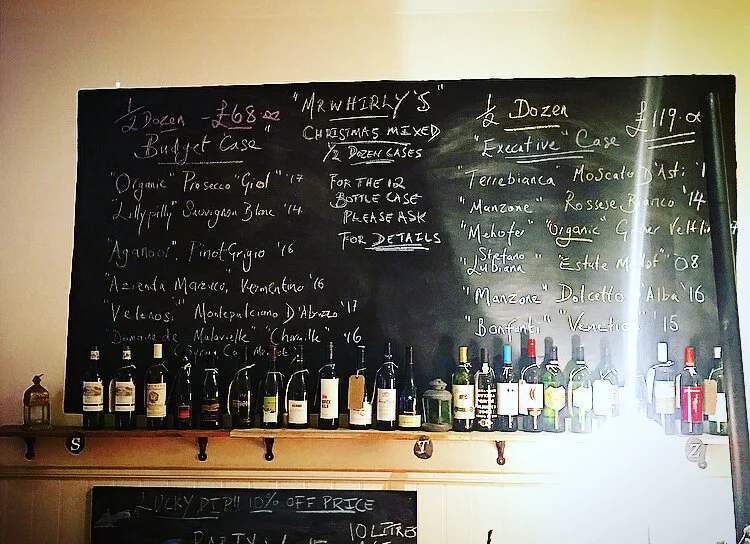 1/2 Dozen - £68.00
"Budget Case"
"Organic" Prosecco "Giol" '17
"Lillypilly" Sauvignon Blanc '14
Pinot Grigio '16
"Azienda Vermentino '16
"Velenosi" Montepulciano D'Abruzzo '17
"Domaine de '16
"MR WHIRLY'S"
CHRISTMAS MIXED
1/2 DOZEN CASES
FOR THE 12
BOTTLE CASE
PLEASE ASK
FOR DETAILS
1/2 Dozen £119.00
"Executive" Case
"Terrebianca" Moscato D'Asti '1
"Manzone" Rossese Bianco '14
"Mehofer" "Organic" Gruner
Stefano
Lubiana "Estate Merlot" '08
"Manzone" Dolcetto D'Alba '16
"Bonfanti" '15
S
T
Z
LUCKY DIP!! 10% OFF PRICE
PARTY
10 LITRES